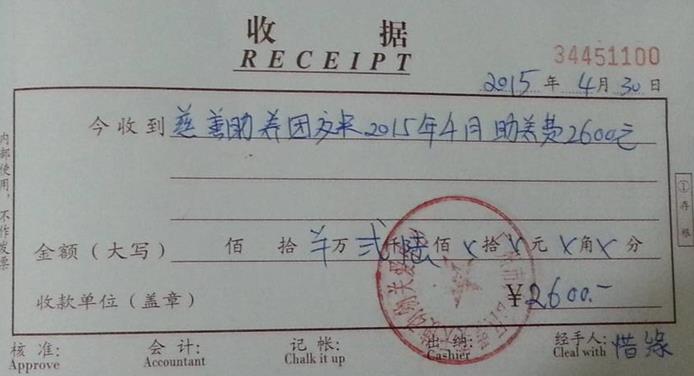 收 据
RECEIPT
34451100
2015 年 4 月 30 日
今收到 慈善助养团发来2015年4月助养费2600元
金额（大写） 佰 拾 ￥万 贰仟陆佰 ×拾 ×元 ×角 ×分
收款单位（盖章） ¥2600.-
内部使用，不作发票
①存根
核 准: 会 计: 记 帐: 出 纳: 经手人: 惜缘
Approve Accountant Chalk it up Cashier Cleal with